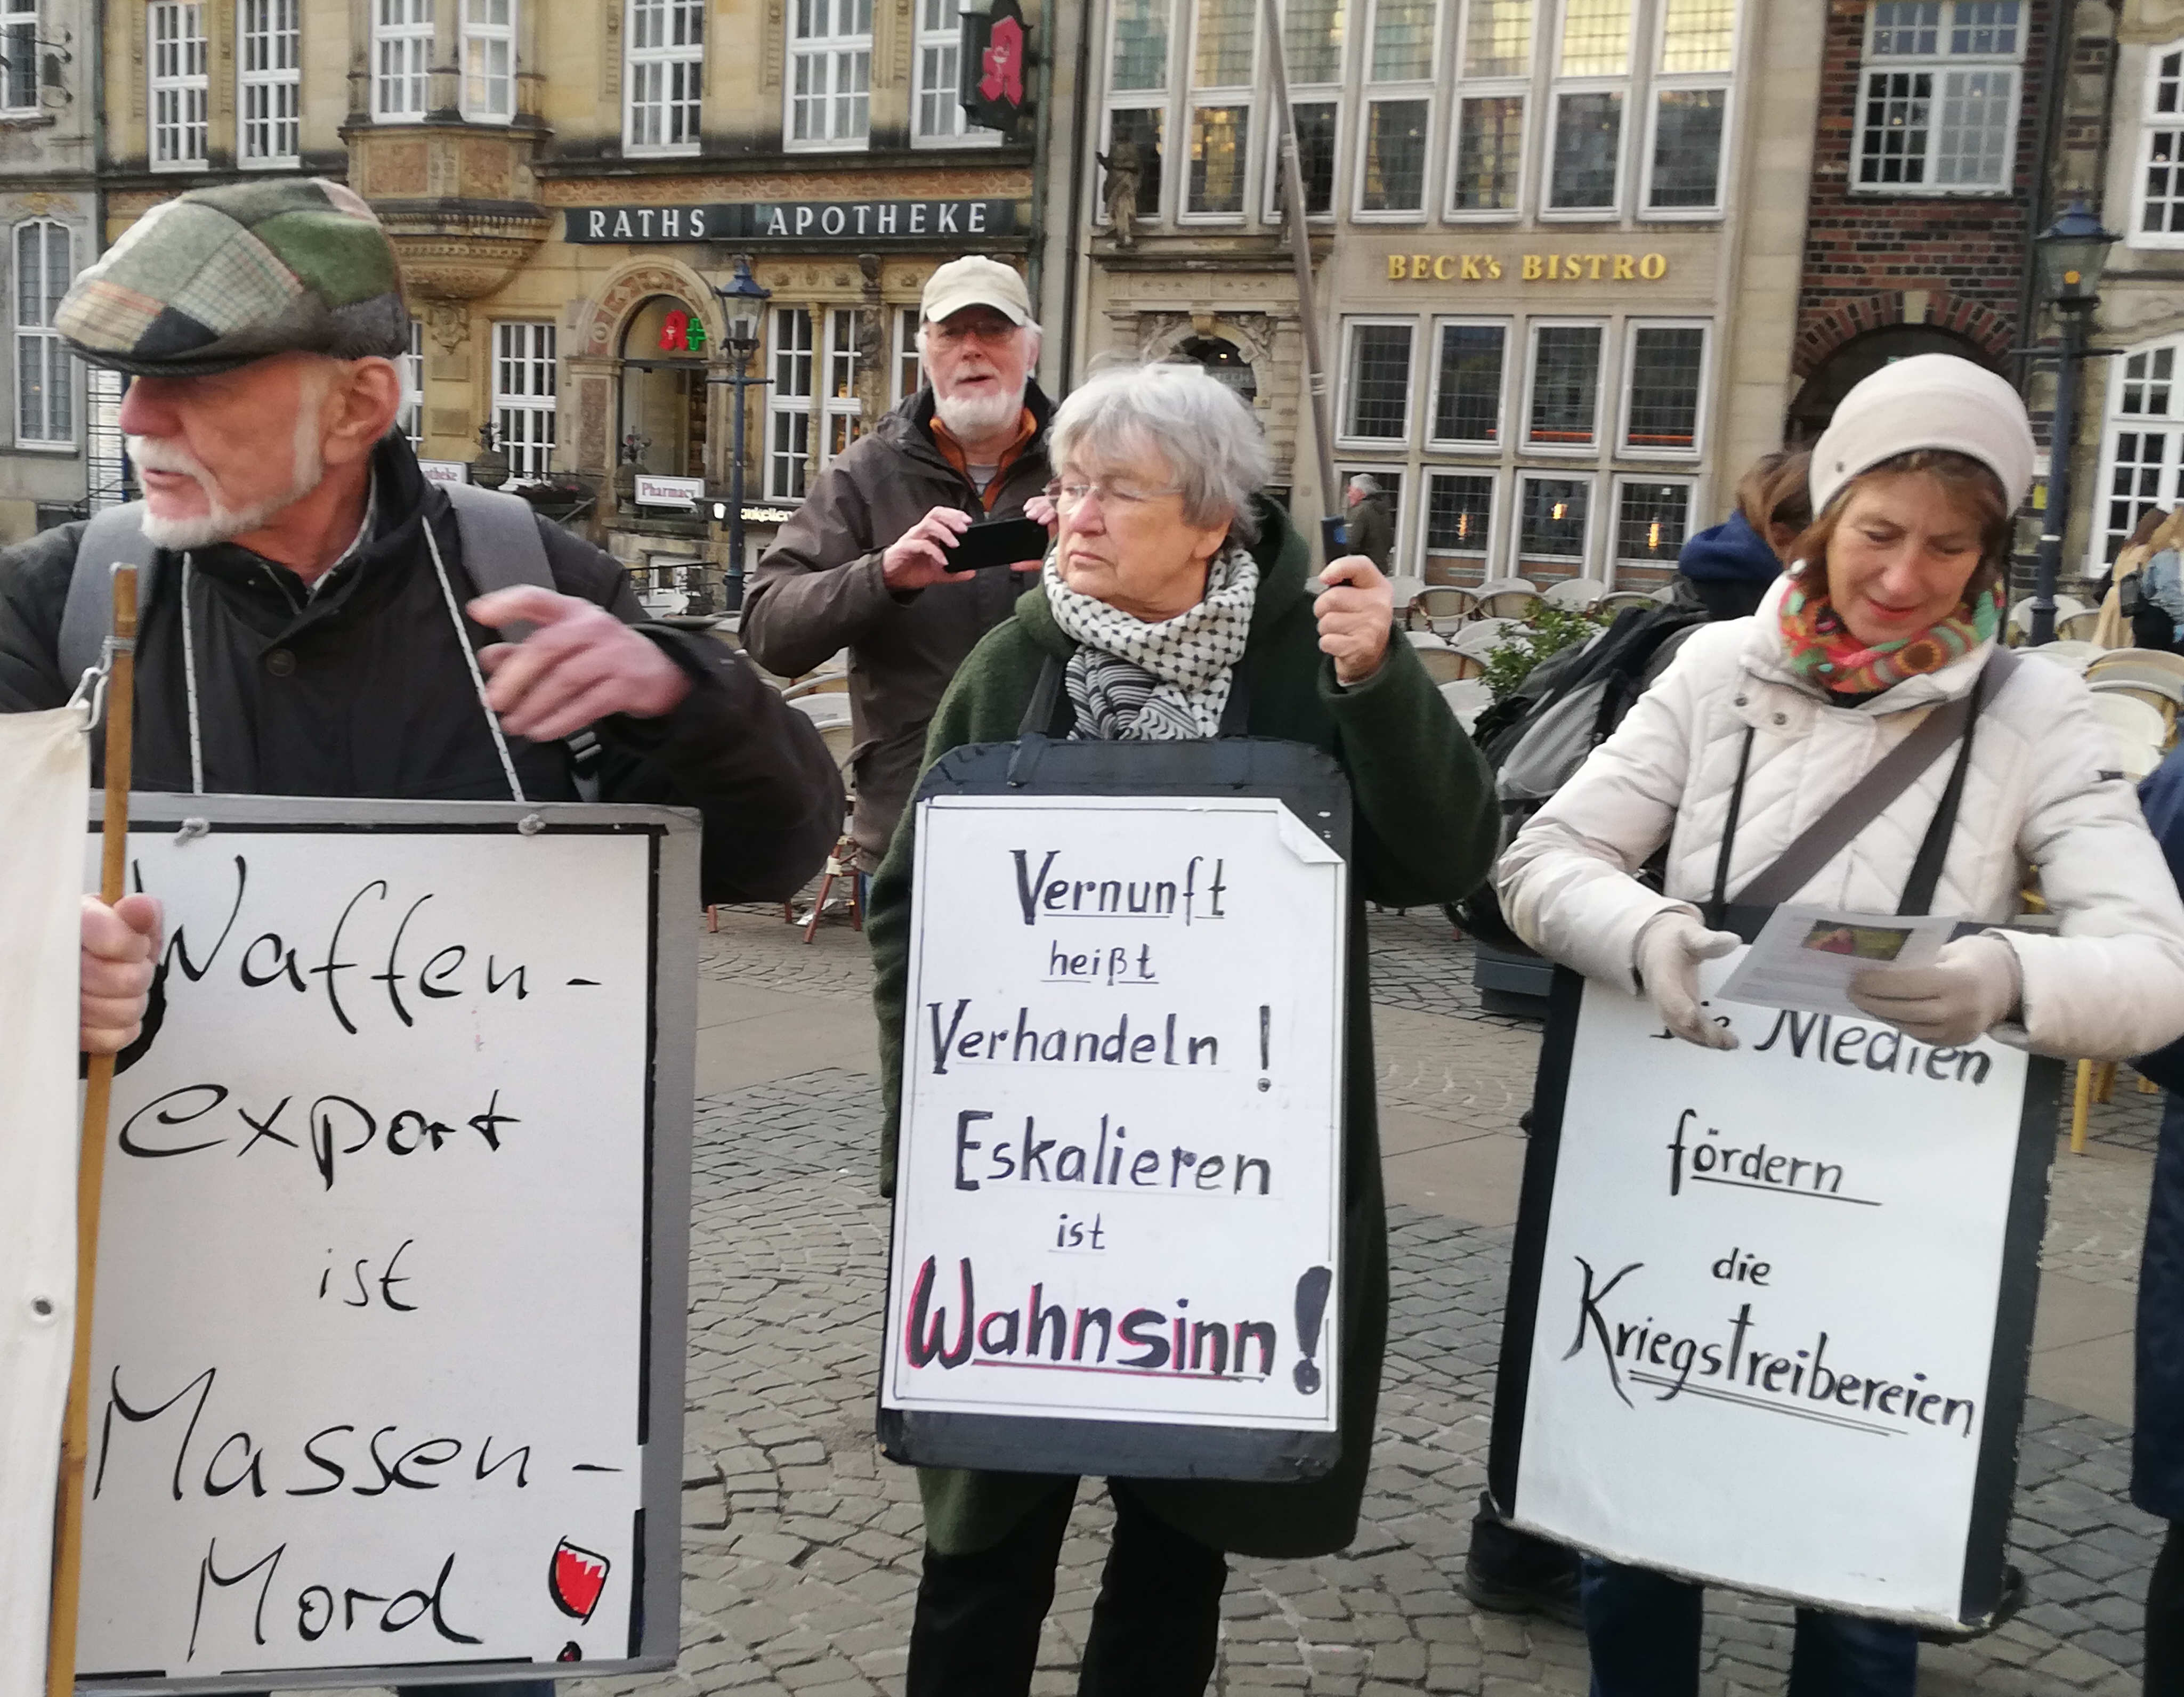 RATHS APOTHEKE
BECK's BISTRO
Pharmacy
Waffen-
export
ist
Massen-
Mord !
Vernunft
heißt
Verhandeln !
Eskalieren
ist
Wahnsinn !
Medien
fördern
die
Kriegstreibereien